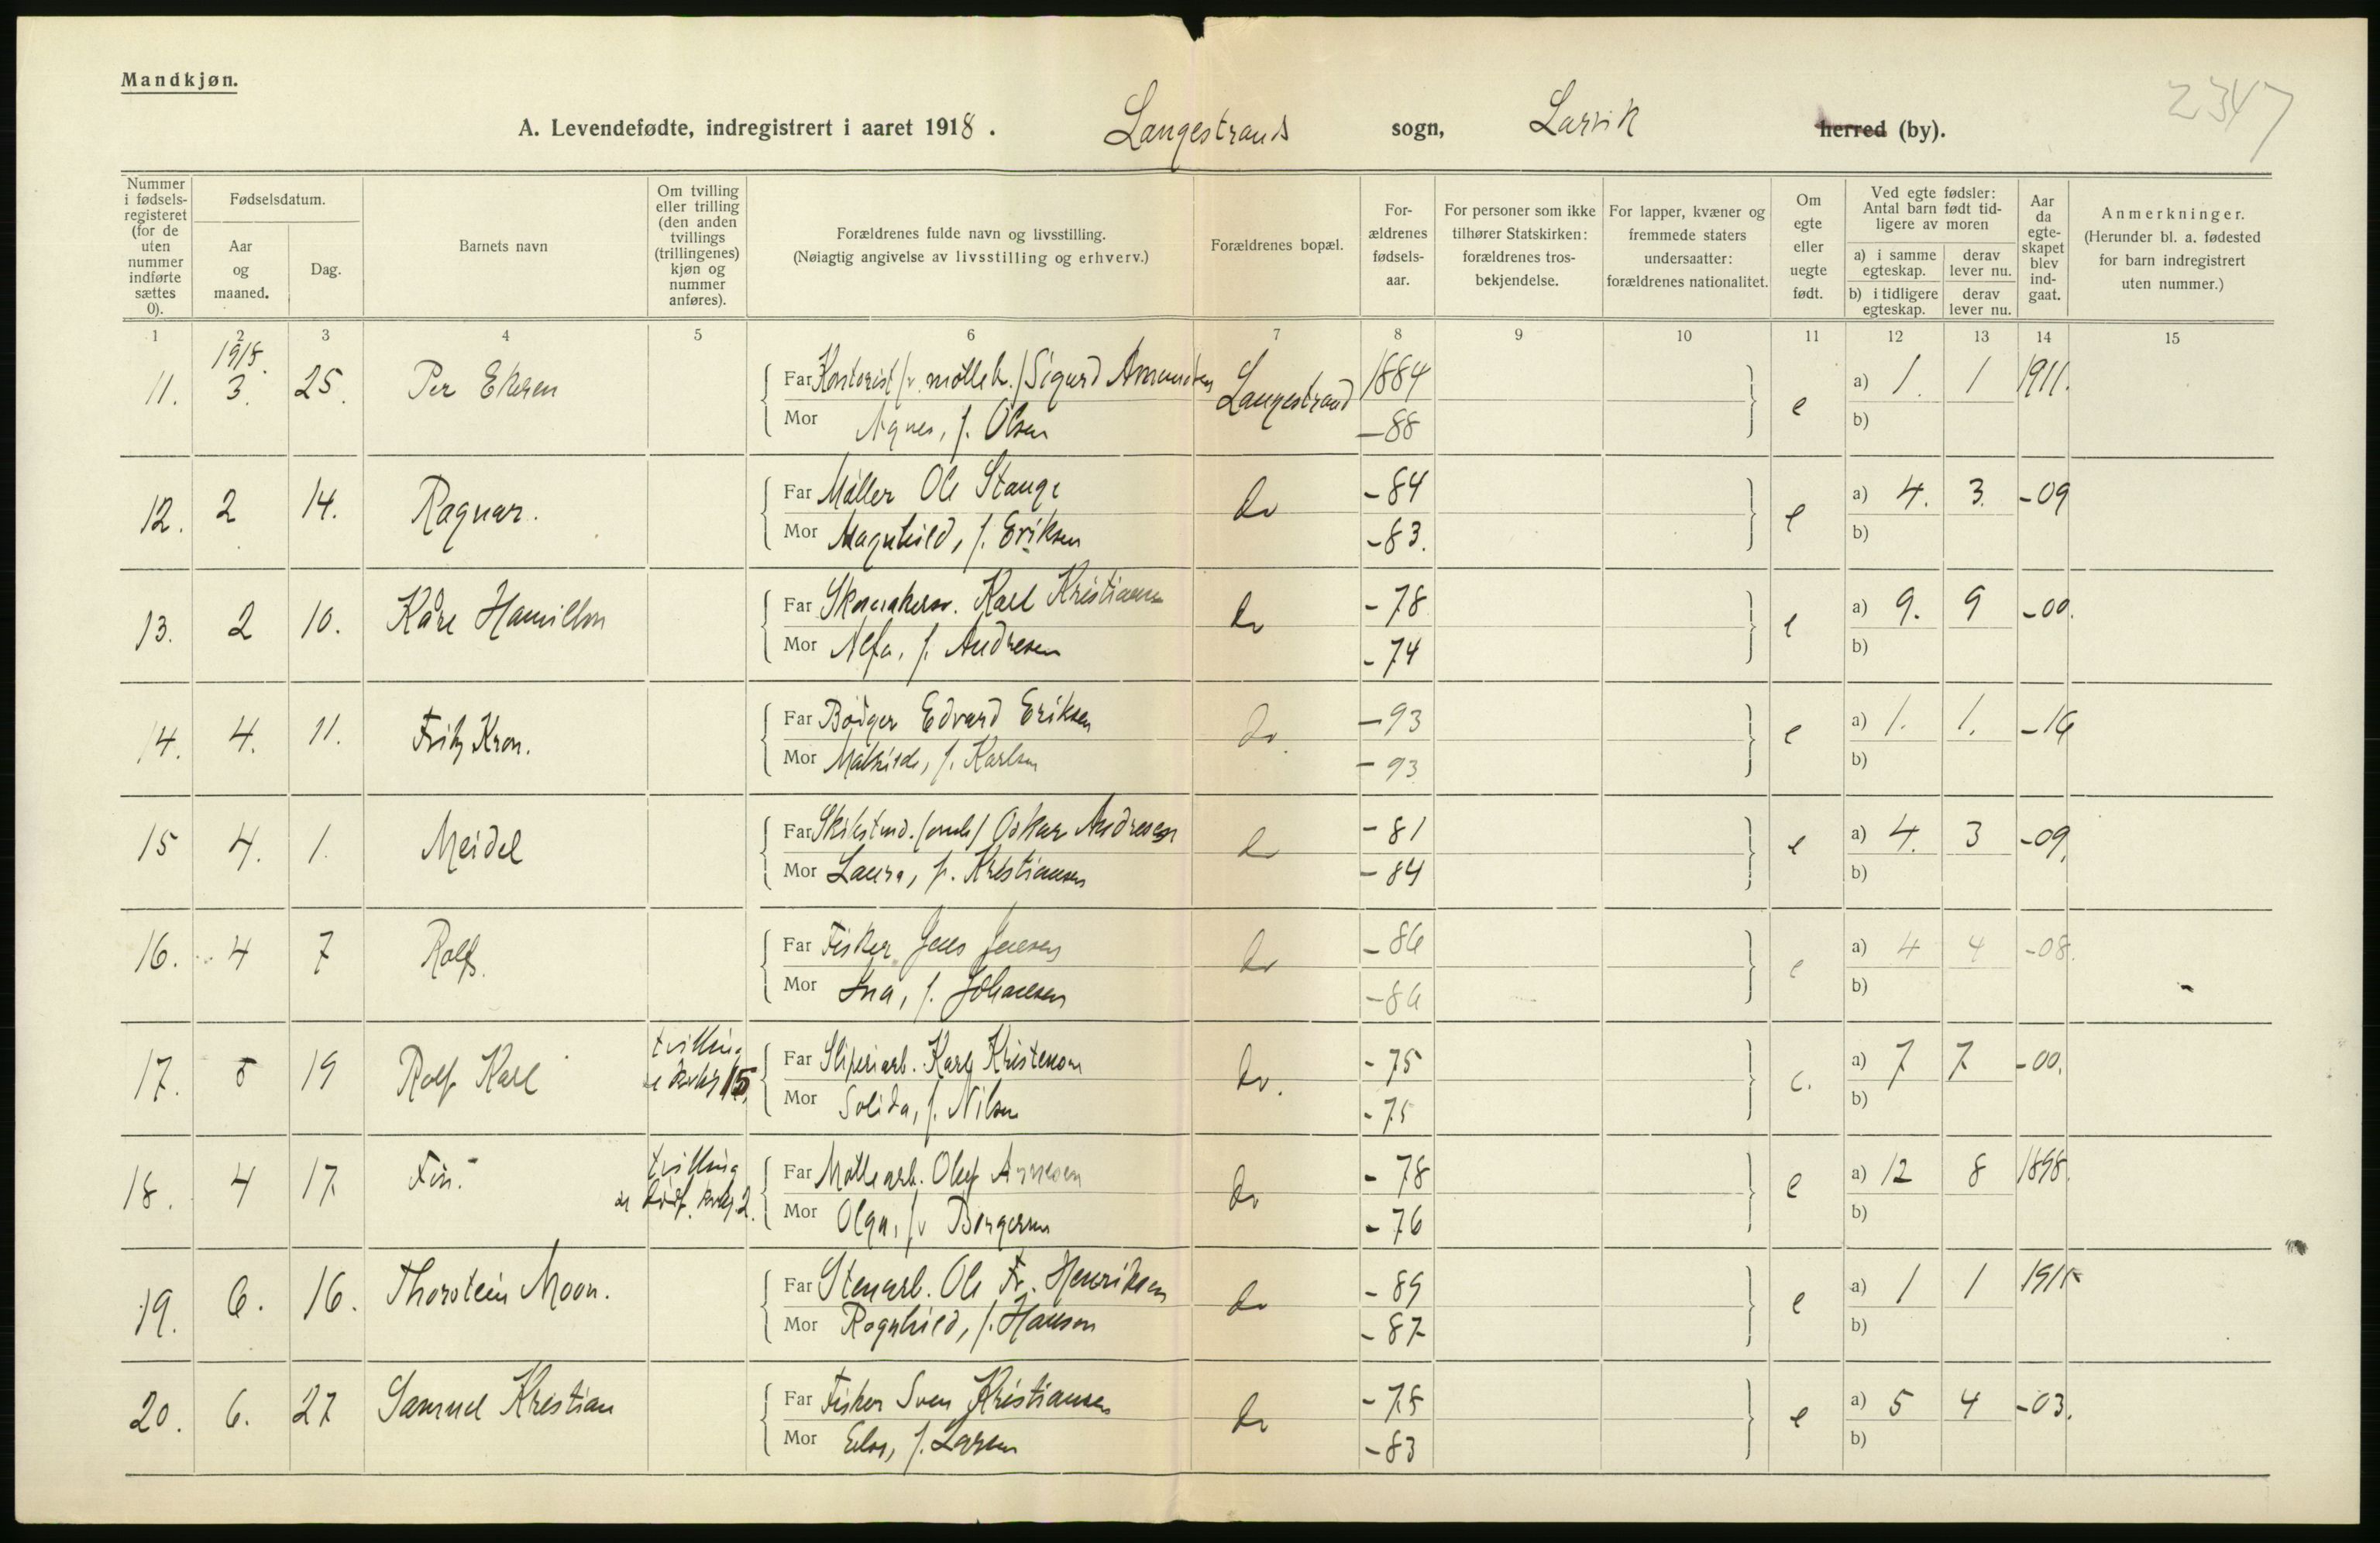 Mandkjøn.
A. Levendefødte, indregistrert i aaret 1918. Langestrands sogn, Larvik herred (by). 2347
Nummer i fødselsregisteret (for de uten nummer indførte sættes 0).
Fødselsdatum.
Aar og maaned.
Dag.
Barnets navn
Om tvilling eller trilling (den anden tvillings (trillingenes) kjøn og nummer anføres).
Forældrenes fulde navn og livsstilling.
(Nøiagtig angivelse av livsstilling og erhverv.)
Forældrenes bopæl.
Forældrenes fødselsaar.
For personer som ikke tilhører Statskirken: forældrenes trosbekjendelse.
For lapper, kvæner og fremmede staters undersaatter: forældrenes nationalitet.
Om egte eller uegte født.
Ved egte fødsler: Antal barn født tidligere av moren
a) i samme egteskap. derav lever nu.
b) i tidligere egteskap. derav lever nu.
Aar da egteskapet blev indgaat.
Anmerkninger.
(Herunder bl. a. fødested for barn indregistrert uten nummer.)
1 2 3 4 5 6 7 8 9 10 11 12 13 14 15
1918.
11. 3. 25. Per Ekeren Far Kontorist /v. mølleb./ Sigurd Amundsen Langestrand 1884 e a) 1. 1 1911.
Mor Agnes, f. Olsen -88 b)
12. 2 14. Ragnar. Far Møller Ole Stange do -84 e a) 4. 3. -09
Mor Magnhild, f. Eriksen -83. b)
13. 2 10. Kåre Far Skomakersv. Karl Kristiansen do -78 e a) 9. 9 -00.
Mor Alfa, f. Andresen -74 b)
14. 4. 11. Fritz Kron. Far Bødger Edvard Eriksen do. -93 e a) 1. 1. -16
Mor Mathilde, f. Karlsen -93 b)
15 4. 1. Meidel Far Oskar Andresen do -81 e a) 4. 3 -09.
Mor Laura, f. Kristiansen -84 b)
16. 4 7 Rolf. Far Fisker Jens Jensen do -86 e a) 4 4 -08.
Mor Ina, f. Johansen -86 b)
17. 5 19 Rolf Karl tvilling 15 Far Sliperiarb. Karl Kristenson do. -75 e. a) 7 7 -00.
Mor Solida, f. Nilsen -75 b)
18. 4 17 Finn. tvilling 2. Far Møllearb. Oluf Arnesen do -78 e a) 12 8 1898.
Mor Olga, f. Bergersen -76 b)
19. 6. 16. Thorstein Moon. Far Stenarb. Ole Fr. Henriksen do -89 e a) 1 1 1915
Mor Ragnhild, f. Hansen -87 b)
20. 6. 27 Samuel Kristian Far Fisker Sven Kristiansen do -78 e a) 5 4 -03.
Mor Else, f. Larsen -83 b)